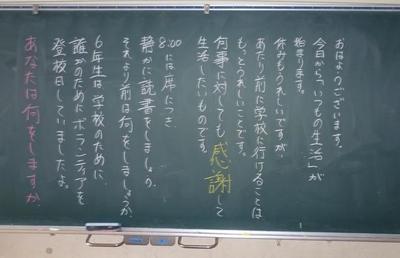 おはようございます。
今日から「いつもの生活」が
始まります。
休みもうれしいですが、
あたり前に学校に行けることは
もっとうれしいことです。
何事に対しても感謝して
生活したいものです。
8:00には席につき
静かに読書をしましょう。
それより前は何をしましょうか。
6年生は学校のために、
誰かのためにボランティアを
登校日していましたよ。
あなたは何をしますか。